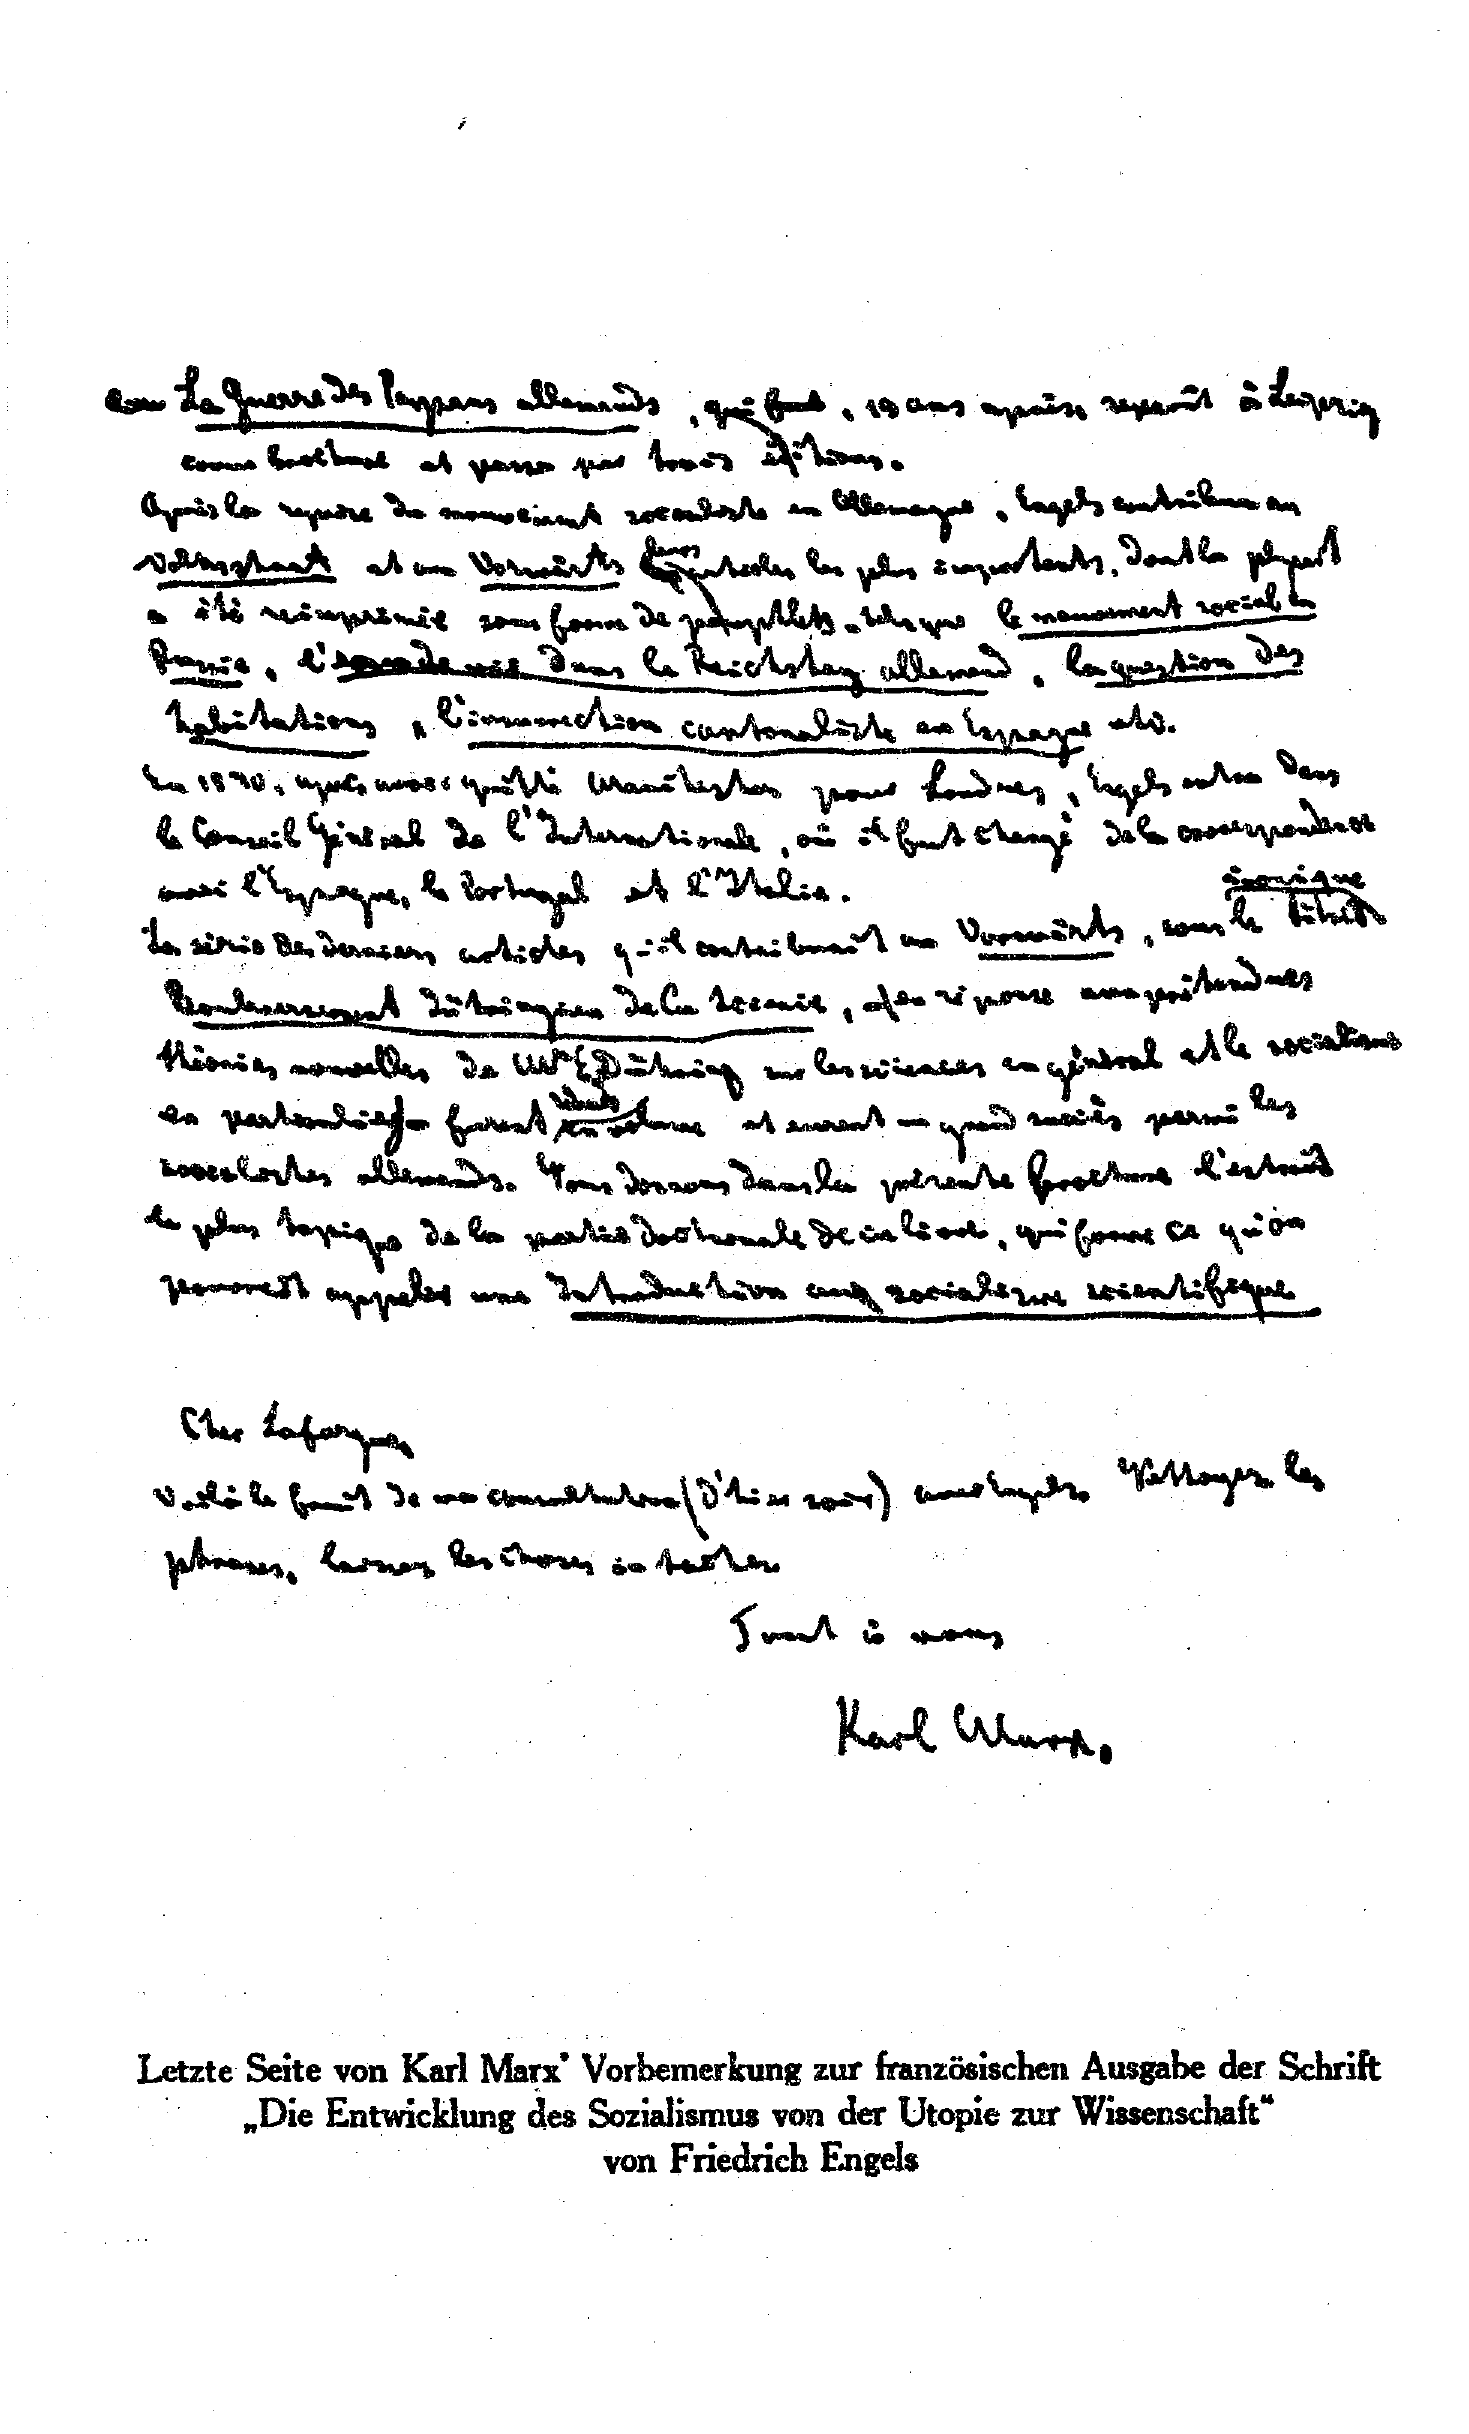 La Guerre des Paysans allemands, qui fut, 19 ans après, reparût à Leipzig
comme brochure et passa par trois éditions.
Après la reprise du mouvement socialiste en Allemagne, Engels contribua au
Volksstaat et au Vorwärts leurs articles les plus importants, dont la plupart
a été réimprimée sous forme de pamphlets, tels que le mouvement social en
Russie, l' dans le Reichstag allemand, la question des
habitations, l'insurrection cantonaliste en Espagne etc.
En 1870, après avoir quitté Manchester pour Londres, Engels entra dans
le Conseil Général de l'Internationale, où il fut chargé de la correspondence
avec l'Espagne, le Portugal et l'Italie.
ironique
La série des derniers articles qu'il contribuait au Vorwärts, sous le titre
Bouleversement dühringien de la science, en réponse aux prétendues
théories nouvelles de Mr E. Dühring sur les sciences en général et le socialisme
en particulier furent en volume et eurent un grand succès parmi les
socialistes allemands. Nous donnons dans la présente brochure l'extrait
le plus topique de la partie de ce livre, qui forme ce qu'on
pourrait appeler une Introduction au socialisme scientifique
Cher Lafargue,
Voilà le fruit de ma consultation (d'hier soir) avec Engels. Nettoyez les
phrases, laissez les choses intactes.
Tout à vous
Karl Marx.
Letzte Seite von Karl Marx' Vorbemerkung zur französischen Ausgabe der Schrift
„Die Entwicklung des Sozialismus von der Utopie zur Wissenschaft“
von Friedrich Engels